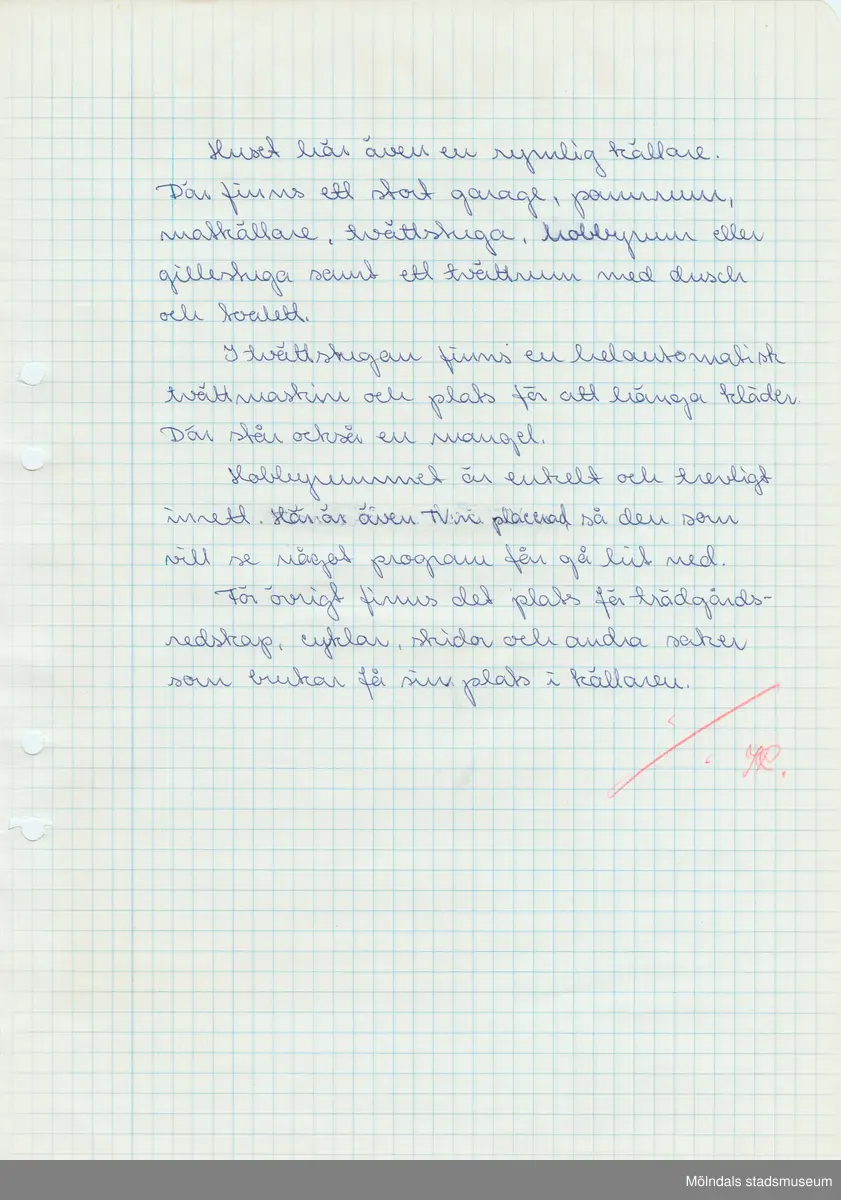 Huset här även en rymlig källare.
Där finns ett stort garage, pannrum,
matkällare, tvättstuga, hobbyrum eller
gillestuga samt ett tvättrum med dusch
och toalett.
I tvättstugan finns en helautomatisk
tvättmaskin och plats för att hänga kläder.
Där står också en mangel.
Hobbyrummet är enkelt och trevligt
inrett. Här är även TV:n placerad så den som
vill se något program får gå hit ned.
För övrigt finns det plats för trädgårds-
redskap, cyklar, skidor och andra saker
som brukar få sin plats i källaren.
Mölndals stadsmuseum